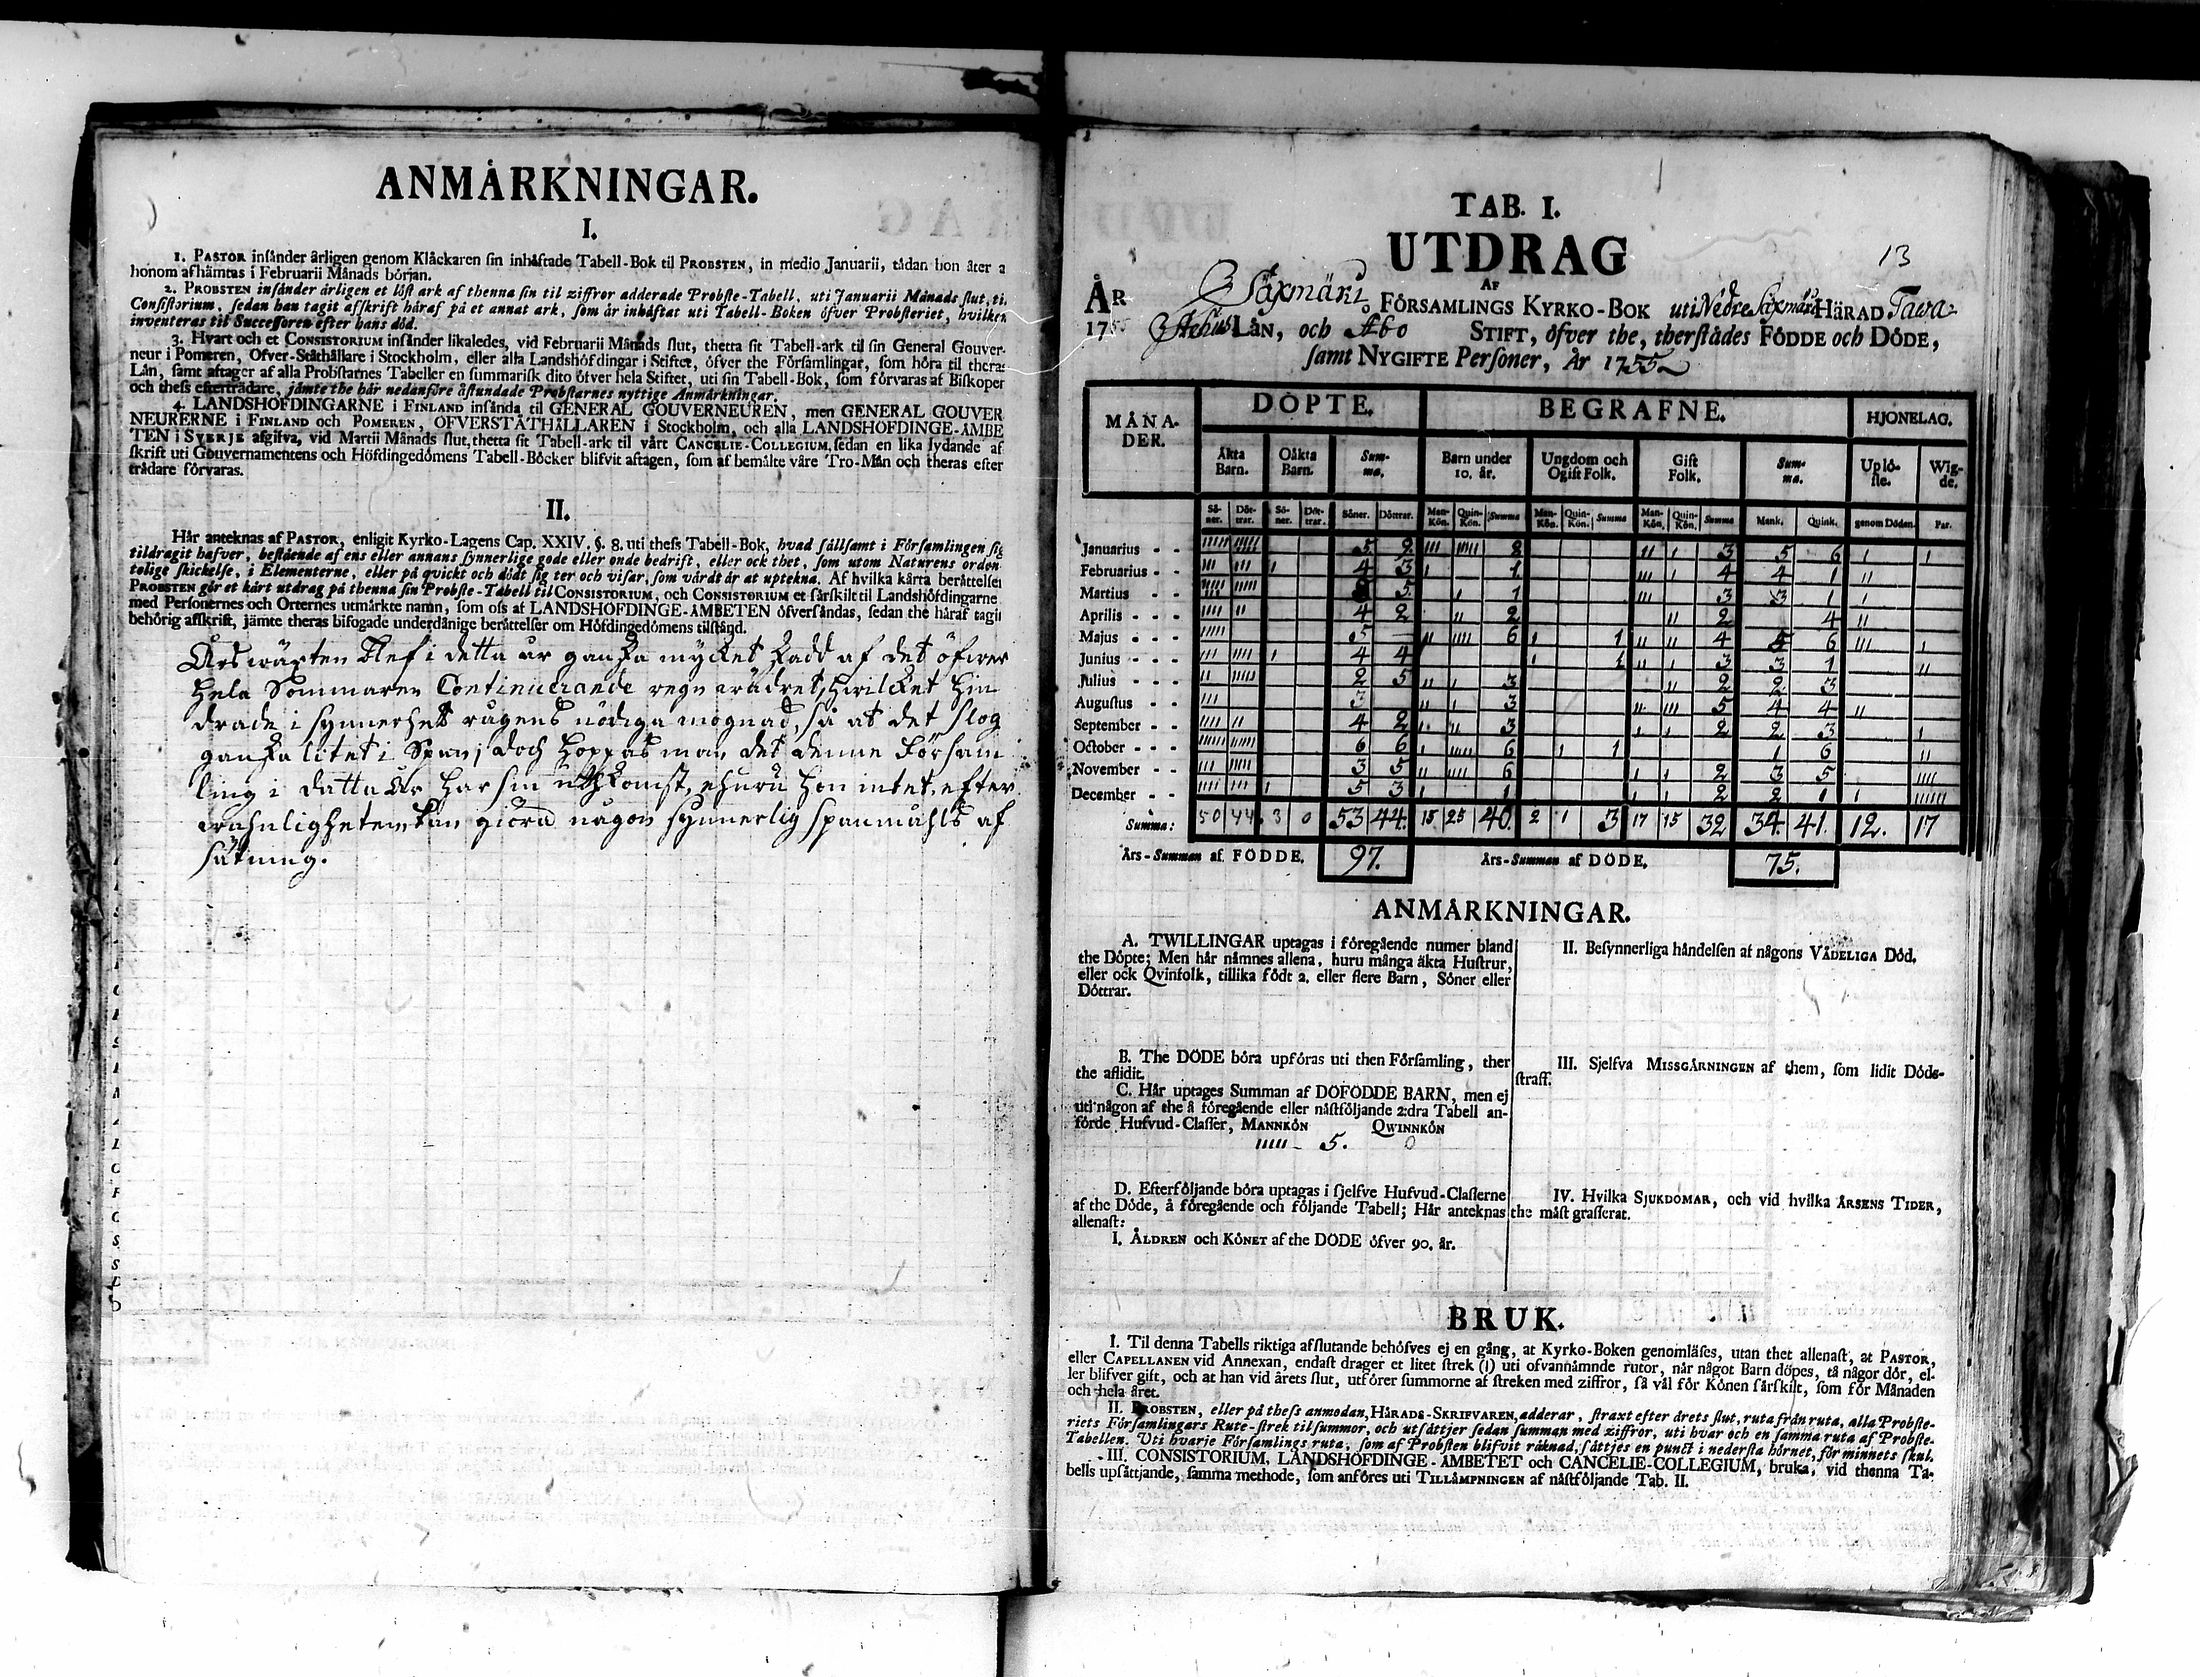 ANMÅRKNINGAR.
I.
1. PASTOR insånder årligen genom Klåckaren sin inhåftade Tabell-Bok til PROBSTEN, in medio Januarii, tådan hon åter a
honom afhämtas i Februarii Månads början.
2. PROBSTEN insånder årligen et löst ark af thenna sin til ziffror adderade Probste-Tabell, uti Januarii Månads slut, ti
Consistorium, sedan han tagit afskrift håraf på et annat ark, som år inhåftat uti Tabell-Boken öfver Probsteriet, hvilken
inventeras til Successoren efter hans död.
3. Hvart och et CONSISTORIUM insånder likaledes, vid Februarii Månads slut, thetta sit Tabell-ark til sin General Gouver-
neur i Pomeren, Öfver-Ståthållare i Stockholm, eller alla Landshöfdingar i Stiftet, öfver the Församlingar, som höra til theras
Lån, samt aftager af alla Probstarnes Tabeller en summarisk dito öfver hela Stiftet, uti sin Tabell-Bok, som förvaras af Biskoper
och thess efterträdare, jämte the hår nedanföre åstundade Probstarnes nyttige Anmårkningar.
4. LANDSHÖFDINGARNE i FINLAND insånda til GENERAL GOUVERNEUREN, men GENERAL GOUVER
NEURERNE i FINLAND och POMEREN, ÖFVERSTÅTHÅLLAREN i Stockholm, och alla LANDSHÖFDINGE-ÅMBE
TEN i SVERJE afgifva, vid Martii Månads slut, thetta sit Tabell-ark til vårt CANCELIE-COLLEGIUM, sedan en lika lydande af
skrift uti Gouvernamentens och Höfdingedömens Tabell-Böcker blifvit aftagen, som af bemälte våre Tro-Mån och theras efter
trådare förvaras.
II.
Hår anteknas af PASTOR, enligit Kyrko-Lagens Cap. XXIV, §. 8. uti thess Tabell-Bok, hvad sållsamt i Församlingen sig
tildragit hafver, bestående af ens eller annans synnerlige gode eller onde bedrift, eller ock thet, som utom Naturens orden
telige skickelse, i Elementerne, eller på qvickt och dödt sig ter och visar, som vårdt år at uptekna. Af hvilka kårta beråttelser
PROBSTEN gör et kårt utdrag på thenna sin Probste-Tabell til CONSISTORIUM, och CONSISTORIUM et sårskilt til Landshöfdingarne
med Personernes och Orternes utmårkte namn, som oss af LANDSHÖFDINGE-ÅMBETEN öfversåndas, sedan the håraf tagit
behörig afskrift, jämte theras bifogade underdånige beråttelser om Höfdingedömens tilstånd.
Årswäxten blef i detta år ganska mycket skadd af det öfwer
hela Sommaren Continuerande regnwädret, hwilcket hin
drade i synnerhet rågens nödiga mognad, så at det slog
ganska litet i Span; doch hoppas man det denne Försam
ling i datta år har sin utkomst, ehuru hon intet, efter
wahnligheten kan giöra någon synnerlig spanmåhls af
sättning.
13
TAB. I.
UTDRAG
AF
ÅR Säxmäki FÖRSAMLINGS KYRKO-BOK uti Nedre Säxmäki HÄRAD Tawa-
1755 stehus LÅN, och Åbo STIFT, öfver the, therstådes FÖDDE och DÖDE,
samt NYGIFTE Personer, År 1755
MÅNA-DER. DÖPTE. BEGRAFNE. HJONELAG.
Åkta Barn. Oåkta Barn. Sum-ma. Barn under 10. år. Ungdom och Ogift Folk. Gift Folk. Sum-ma. Uplö-ste. Wig-de.
Sö-ner. Döt-trar. Sö-ner. Döt-trar. Söner. Döttrar. Man-Kön. Quin-Kön. Summa Man-Kön. Quin-Kön. Summa Man-Kön. Quin-Kön. Summa Mank. Quink. genom Döden. Par.
Januarius - - ııııı ııııııııı 5 9 ııı ııııı 8 ıı ı 3 5 6 ı ı
Februarius - - ııı ııı ı 4 3 ı 1 ııı ı 4 4 1 ıı
Martius - - ıııııııı ııııı 8 5 ı 1 ııı 3 3 1 ı
Aprilis - - - ıııı ıı 4 2 ıı 2 ıı 2 4 ıı
Majus - - - ııııı 5 — ıı ıııı 6 ı 1 ıı ıı 4 5 6 ııı ı
Junius - - - ııı ıııı ı 4 4 ı 1 ıı ı 3 3 1 ıı
Julius - - - ıı ııııı 2 5 ıı ı 3 ıı 2 2 3
Augustus - - ııı 3 ıı ı 3 ıı ııı 5 4 4 ıı
September - - ıııı ıı 4 2 ı ıı 3 ı ı 2 2 3 ı
October - - - ıııııı ıııııı 6 6 ı ııııı 6 ı 1 1 6 ıı
November - - ııı ııııı 3 5 ıı ıııı 6 ı ı 2 3 5 ıııı
December - - ıııı ııı ı 5 3 ı 1 ı ı 2 2 1 ı ıııııı
Summa: 50 44 3 0 53 44. 15 25 40. 2 1 3 17 15 32 34. 41. 12. 17
Års-Summan af FÖDDE. 97. Års-Summan af DÖDE. 75.
ANMÅRKNINGAR.
A. TWILLINGAR uptagas i föregående numer bland
the Döpte; Men hår nåmnes allena, huru många åkta Hustrur,
eller ock Qvinfolk, tillika födt 2. eller flere Barn, Söner eller
Döttrar.
B. The DÖDE böra upföras uti then Församling, ther
the aflidit.
C. Hår uptages Summan af DÖFÖDDE BARN, men ej
uti någon af the å föregående eller nåstföljande 2:dra Tabell an-
förde Hufvud-Classer, MANNKÖN QWINNKÖN
ııııı - 5. 0
D. Efterföljande böra uptagas i sjelfve Hufvud-Classerne
af the Döde, å föregående och följande Tabell; Hår anteknas
allenast:
I. ÅLDREN och KÖNET af the DÖDE öfver 90. år.
II. Besynnerliga håndelsen af någons VÅDELIGA Död.
III. Sjelfva MISSGÅRNINGEN af them, som lidit Döds-
straff.
IV. Hvilka SJUKDOMAR, och vid hvilka ÅRSENS TIDER,
the måst grasserat.
BRUK.
I. Til denna Tabells riktiga afslutande behöfves ej en gång, at Kyrko-Boken genomläses, utan thet allenast, at PASTOR,
eller CAPELLANEN vid Annexan, endast drager et litet strek (ı) uti ofvannåmnde rutor, når något Barn döpes, tå någor dör, el-
ler blifver gift, och at han vid årets slut, utförer summorne af streken med ziffror, så väl för Könen sårskilt, som för Månaden
och hela året.
II. PROBSTEN, eller på thess anmodan, HÅRADS-SKRIFVAREN, adderar, straxt efter årets slut, ruta från ruta, alla Probste-
riets Församlingars Rute-strek til summor, och utsåttjer sedan summan med ziffror, uti hvar och en samma ruta af Probste-
Tabellen. Uti hvarje Församlings ruta, som af Probsten blifvit råknad, såttjes en punct i nedersta hörnet, för minnets skul.
III. CONSISTORIUM, LANDSHÖFDINGE-ÅMBETET och CANCELIE-COLLEGIUM, bruka, vid thenna Ta-
bells upsåttjande, samma methode, som anföres uti TILLÅMPNINGEN af nåstföljande Tab. II.